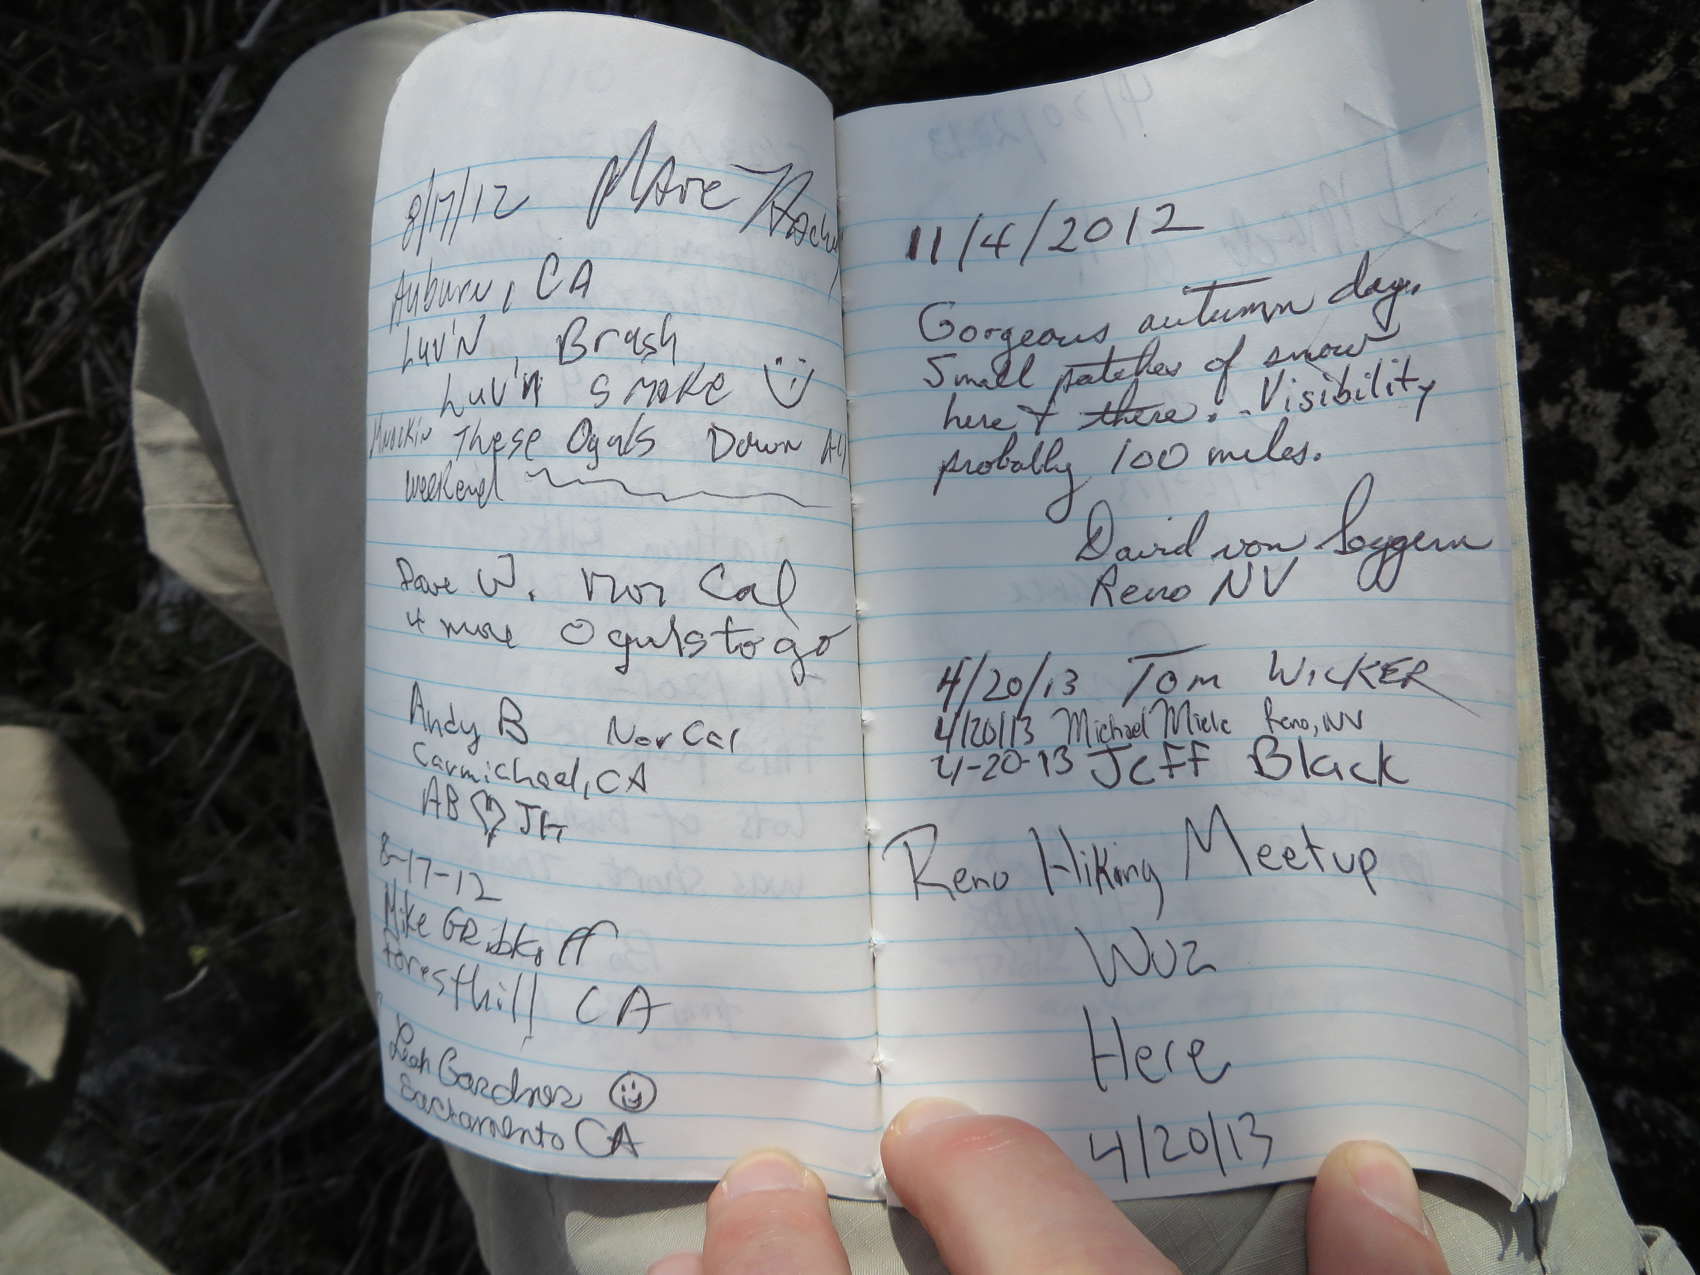 8/17/12
Auburn, CA
Luv'N, Brash
Luv'n SMOKE
These Oguls Down All
Weekend
Dave W. Nor Cal
4 more Oguls to go
Andy B Nor Cal
Carmichael, CA
AB ♡ JG
8-17-12
Mike GRibkoff
Foresthill CA
Leah Gardner
Sacramento CA
11/4/2012
Gorgeous autumn day.
Small patches of snow
here & there. Visibility
probably 100 miles.
David von Seggern
Reno NV
4/20/13 Tom WICKER
4/20/13 Michael Miele Reno, NV
4-20-13 Jeff Black
Reno Hiking Meetup
Wuz
Here
4/20/13